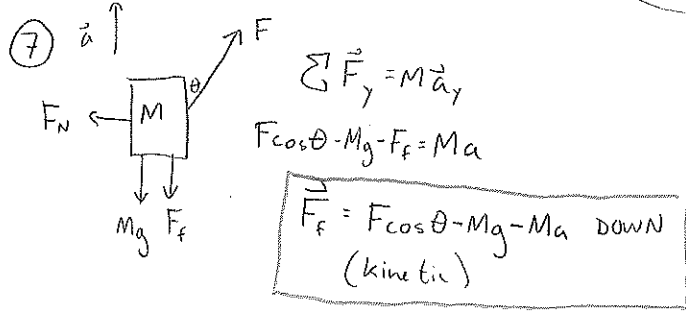 7
a⃗
F
θ
M
F_N
Mg F_f
Σ F⃗_y = M a⃗_y
Fcosθ - Mg - F_f = Ma
F⃗_f = Fcosθ - Mg - Ma DOWN
(kinetic)